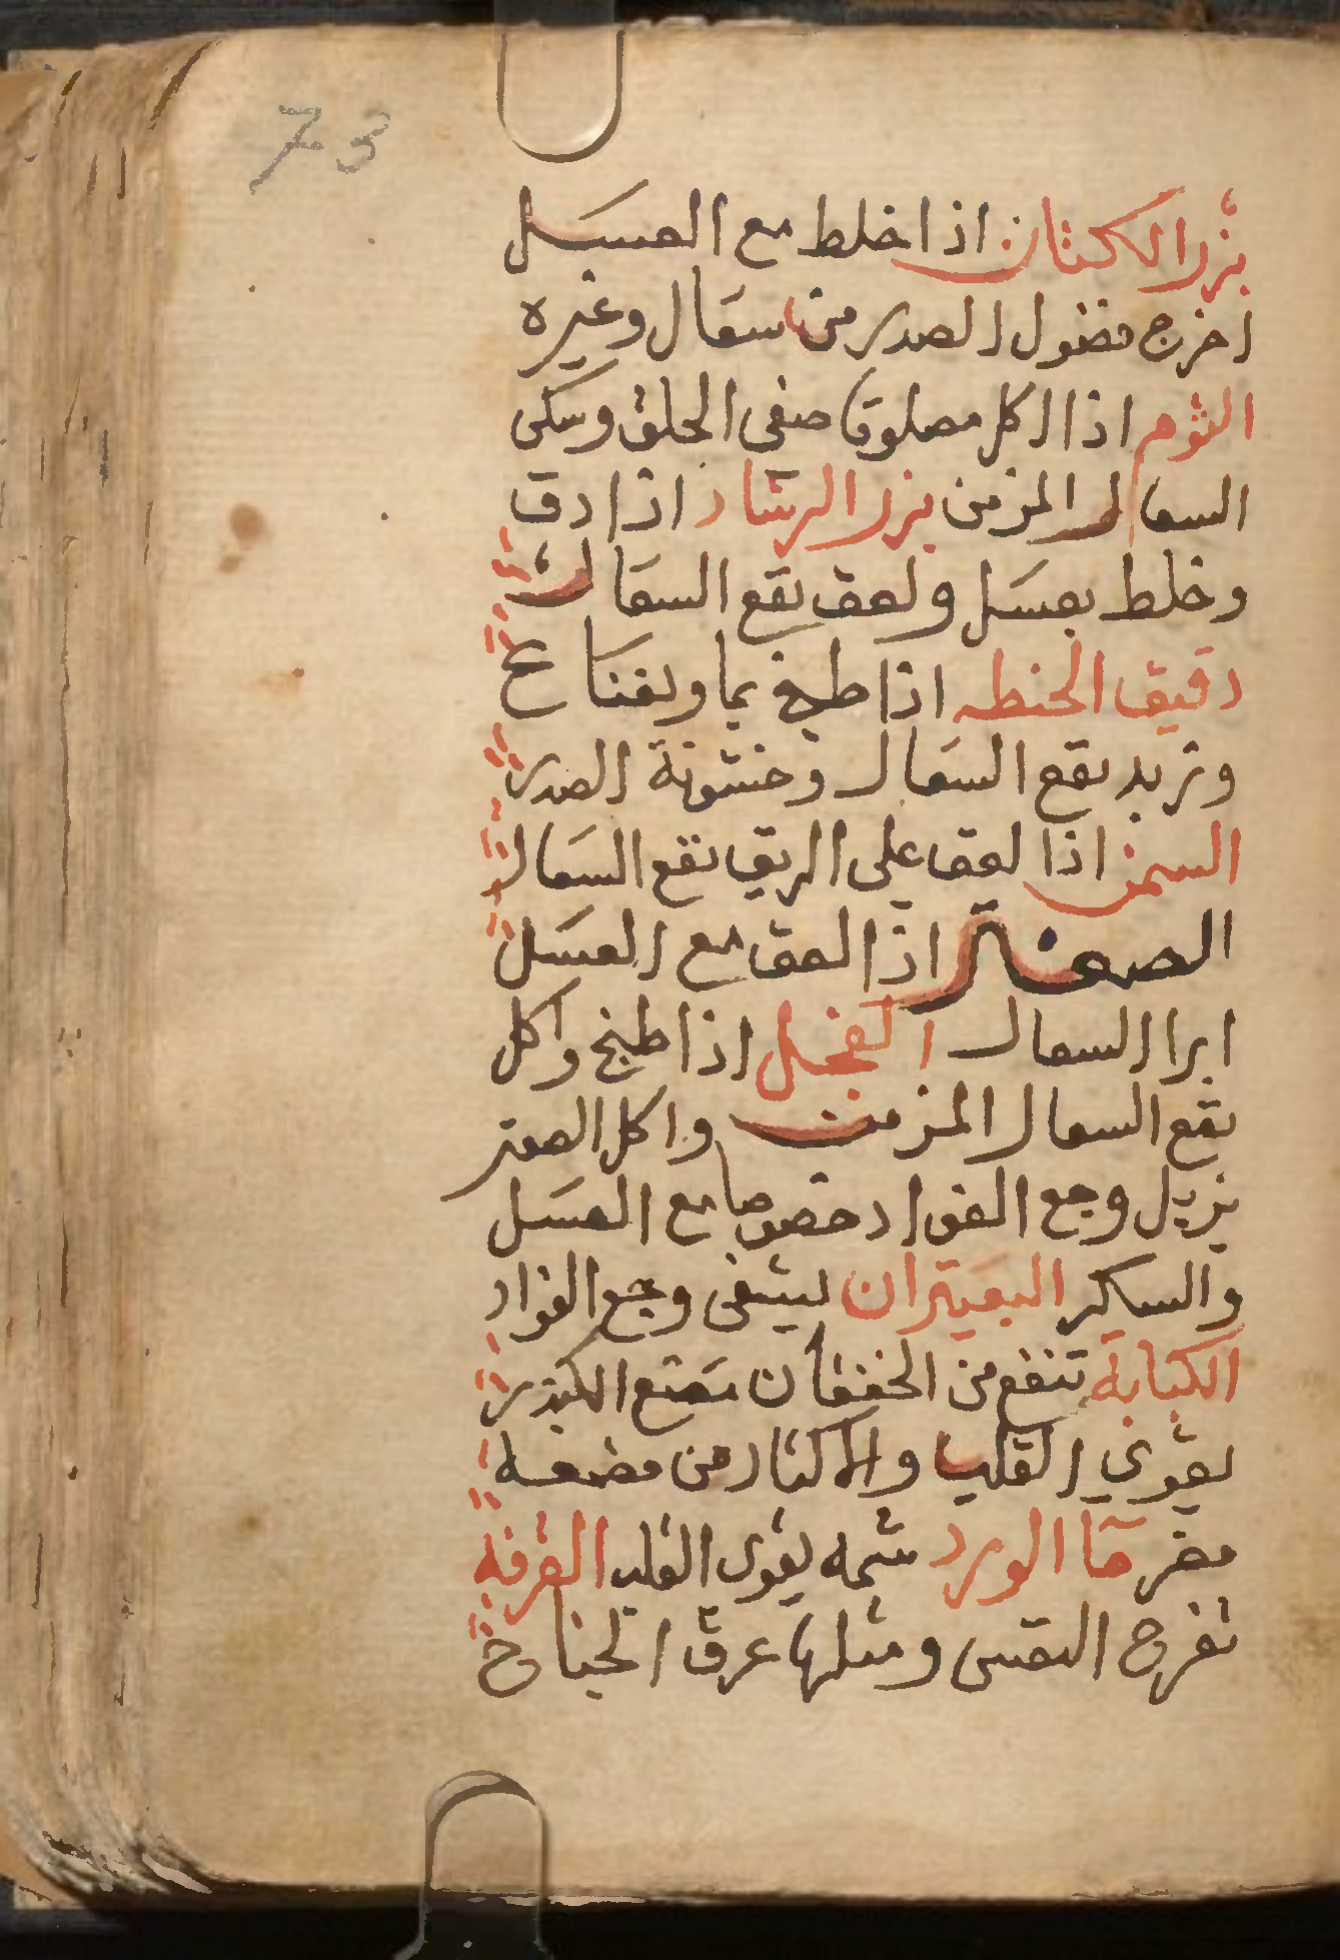 73
بزر الكتان اذا خلط مع العسل
اخرج فضول الصدر من سعال وغيره
الثوم اذا اكل مصلوقا صفى الحلق وسكن
السعال المزمن بزر الرشاد اذا دق
وخلط بعسل ولعق نفع السعال
دقيق الحنطه اذا طبخ بما ونعناع
وزبد نفع السعال وخشونة الصدر
السمن اذا لعق على الريق نفع السعال
الصعتر اذا لعق مع العسل
ابرا السعال الفجل اذا طبخ واكل
نفع السعال المزمن واكل الصعتر
يزيل وجع الفواد خصوصا مع العسل
والسكر البعيتران يشفى وجع الفواد
الكبابة تنفع من الخفقان مضغ الكندر
يقوي القلب والاكثار من مضغه
مضر ما الورد شمه يقوى القلب القرفه
تفرح النفس ومثلها عرق الجناح